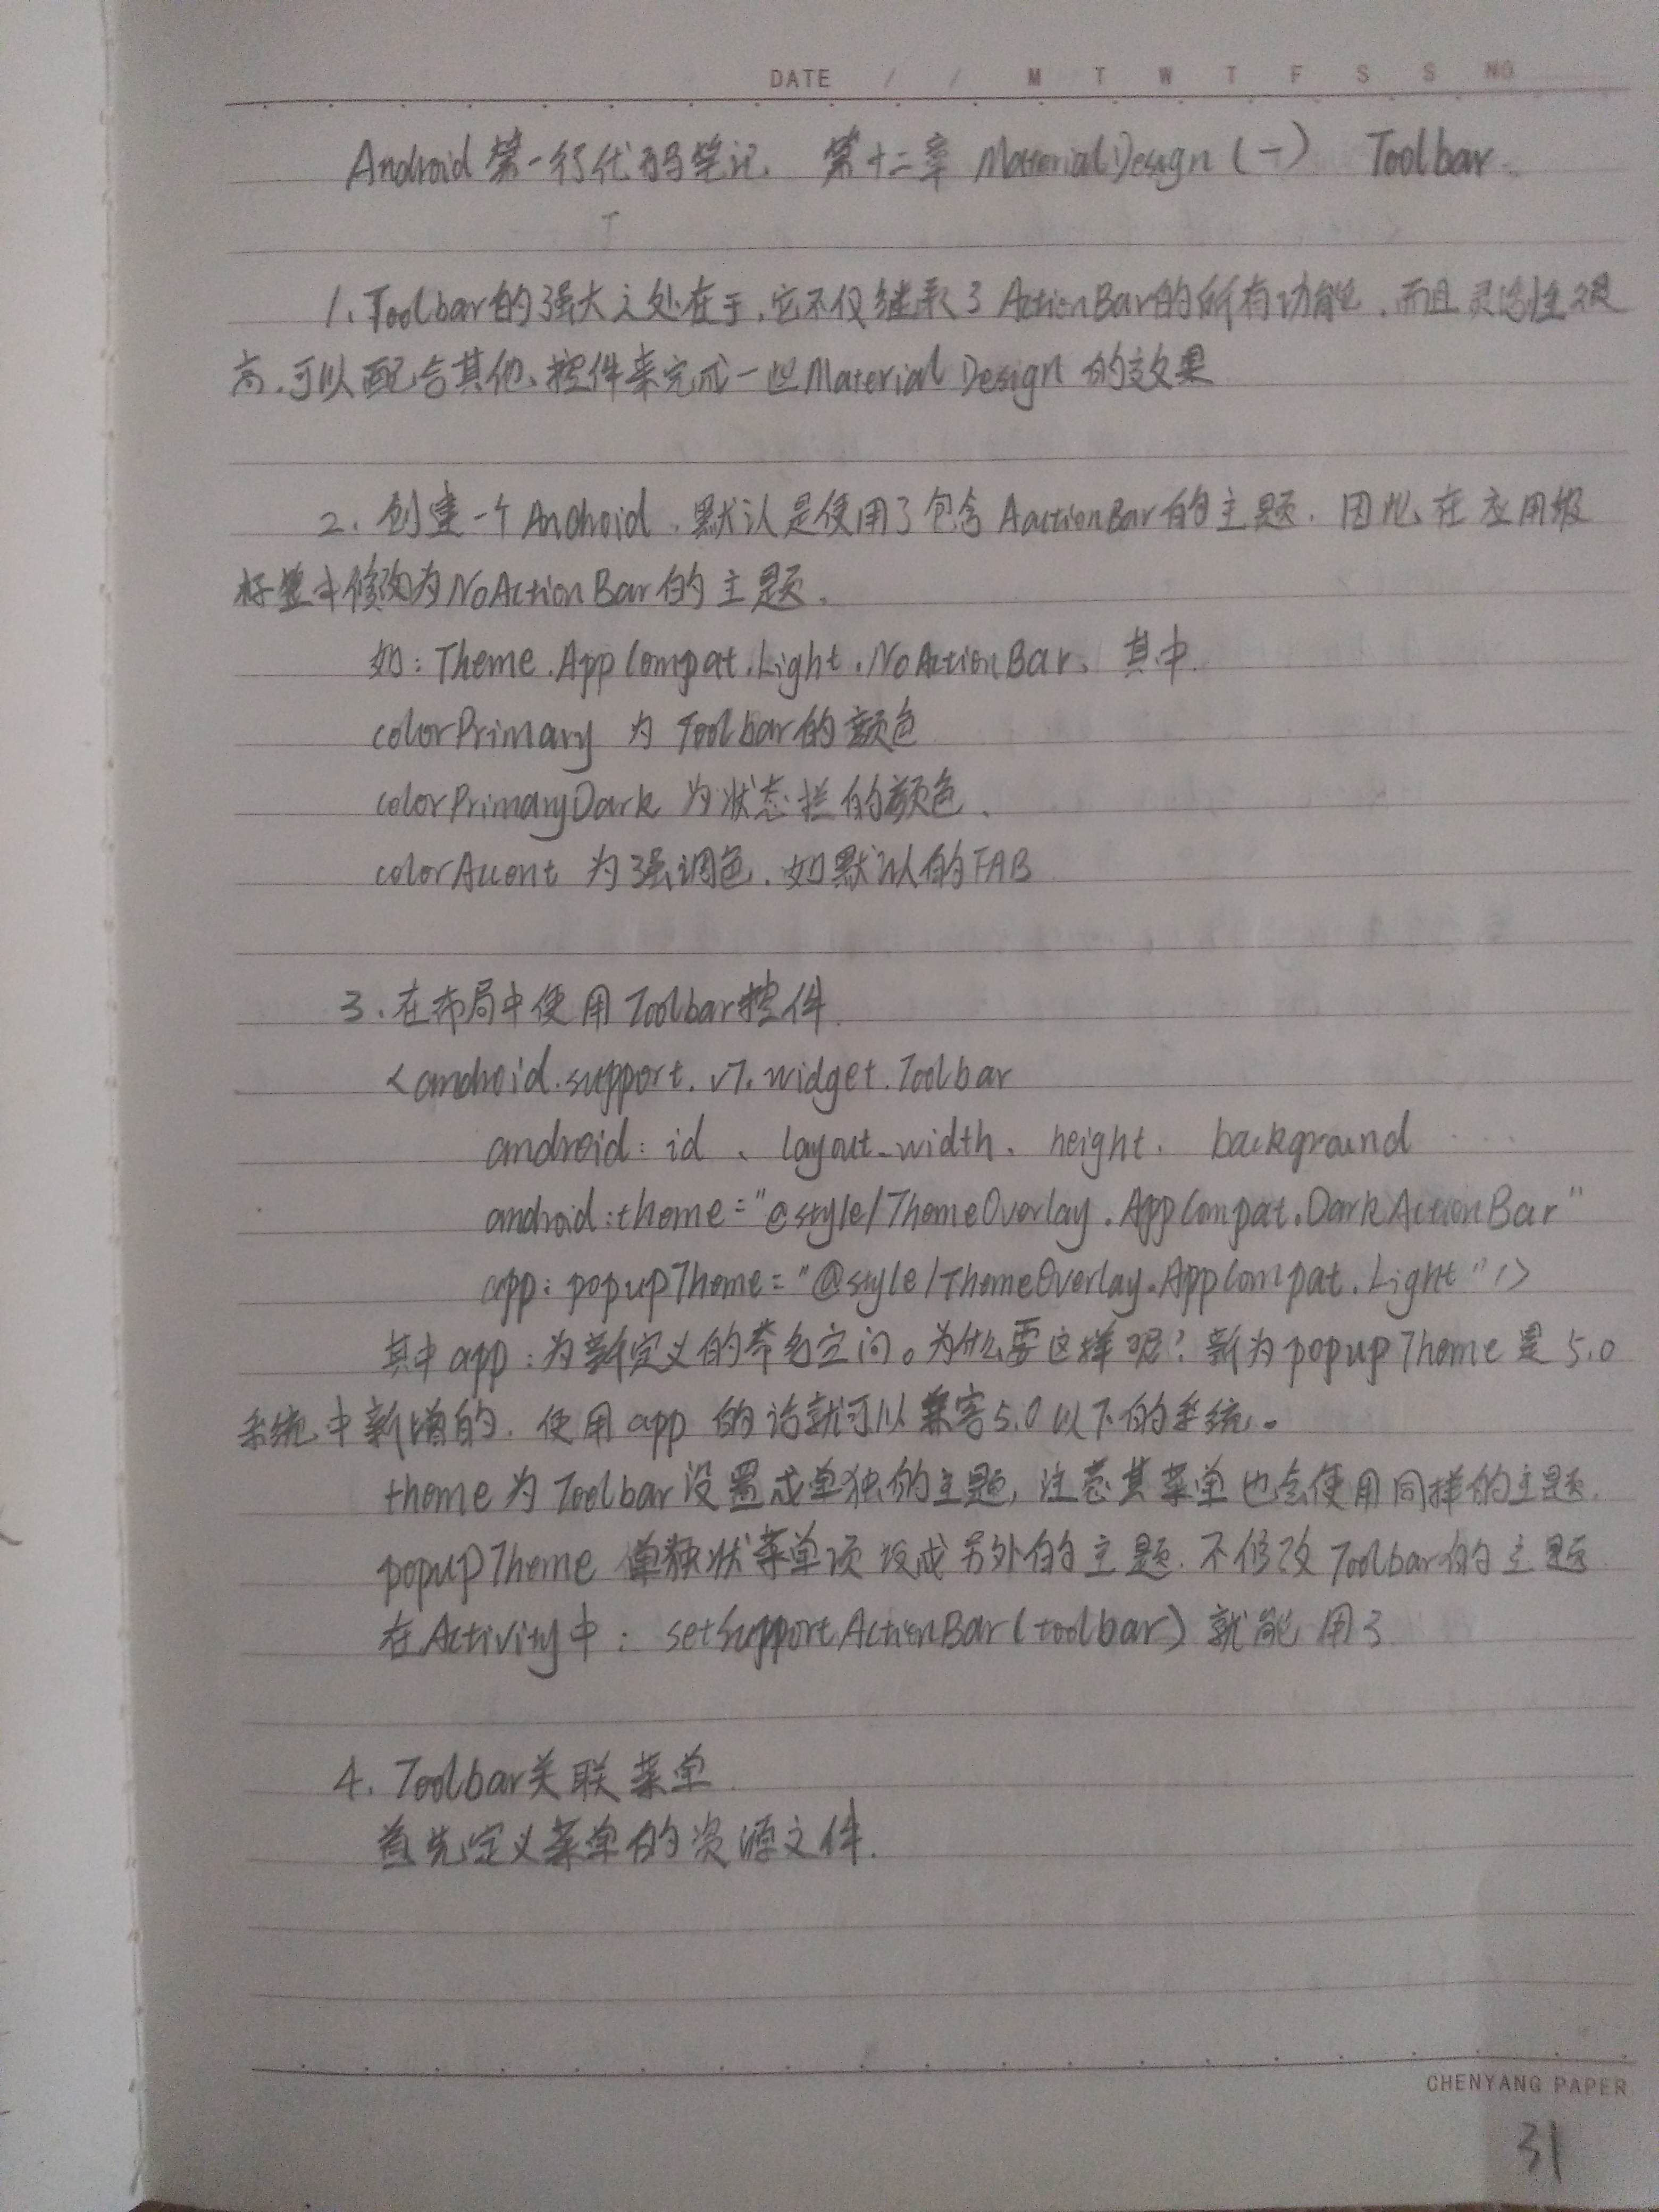 DATE / / M T W T F S S NO
Android第一行代码笔记. 第十二章 MaterialDesign(一) Toolbar.
1、Toolbar的强大之处在于,它不仅继承了ActionBar的所有功能,而且灵活性很
高,可以配合其他、控件来完成一些Material Design的效果
2、创建一个Android,默认是使用了包含AactionBar的主题.因此在应用级
标签中修改为NoActionBar的主题.
如:Theme.AppCompat.Light.NoActionBar、其中
colorPrimary 为Toolbar的颜色
colorPrimaryDark 为状态栏的颜色.
colorAccent 为强调色.如默认的FAB
3、在布局中使用Toolbar控件
<android.support.v7.widget.Toolbar
android:id、layout_width、height. background ....
android:theme="@style/ThemeOverlay.AppCompat.DarkActionBar"
app:popupTheme="@style/ThemeOverlay.AppCompat.Light"/>
其中app:为新定义的命名空间。为什么要这样呢?新为popupTheme是5.0
系统中新增的.使用app的话就可以兼容5.0以下的系统。
theme为Toolbar设置成单独的主题,注意其菜单也会使用同样的主题.
popupTheme 单独状菜单项设成另外的主题.不修改Toolbar的主题
在Activity中:setSupportActionBar(toolbar)就能用了
4、Toolbar关联菜单
首先定义菜单的资源文件.
CHENYANG PAPER
31